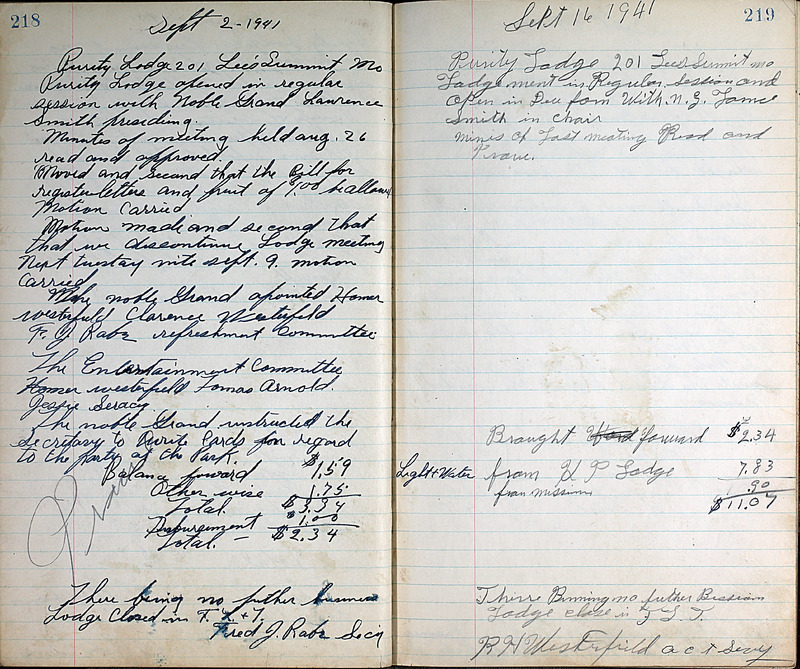 218
Sept 2-1941
Purity Lodge 201 Lee's Summit Mo
Purity Lodge opened in regular
session with Noble Grand Lawrence
Smith presiding.
Minutes of meeting held aug. 26
read and approved.
Moved and second that the Bill for
register letters and fruit of 1.00 be allowed
Motion Carried
Motion made and second that
that we discontinue Lodge meeting
Next tuesday nite sept. 9. motion
Carried
The noble Grand apointed Homer
westerfield Clarence Westerfield
F. J. Rabe refreshment Committee
The Entertainment Committee
Homer westerfield Tomas Arnold.
Jessie
The noble Grand instructed the
Secretary to Write Cards for regard
to the party at the Park.
Balance forward $1.59
Other wise 1.75
Total. $3.34
Disbursement $1.00
Total. - $2.34
There being no futher business
Lodge Closed in F. L. + T.
Fred J. Rabe Secy
219
Sept 16 1941
Purity Lodge 201 Lees Summit mo
Lodge ment in Regular session and
open in Due form With N. G. Lance
Smith in chair
mines of Last meeting Read and
Prove.
Brought forward $2.34
Light + Water from K P Lodge 7.83
from missions .90
$11.07
There Binning no futher Bession
Lodge close in F L T.
R H Westerfield act Secy